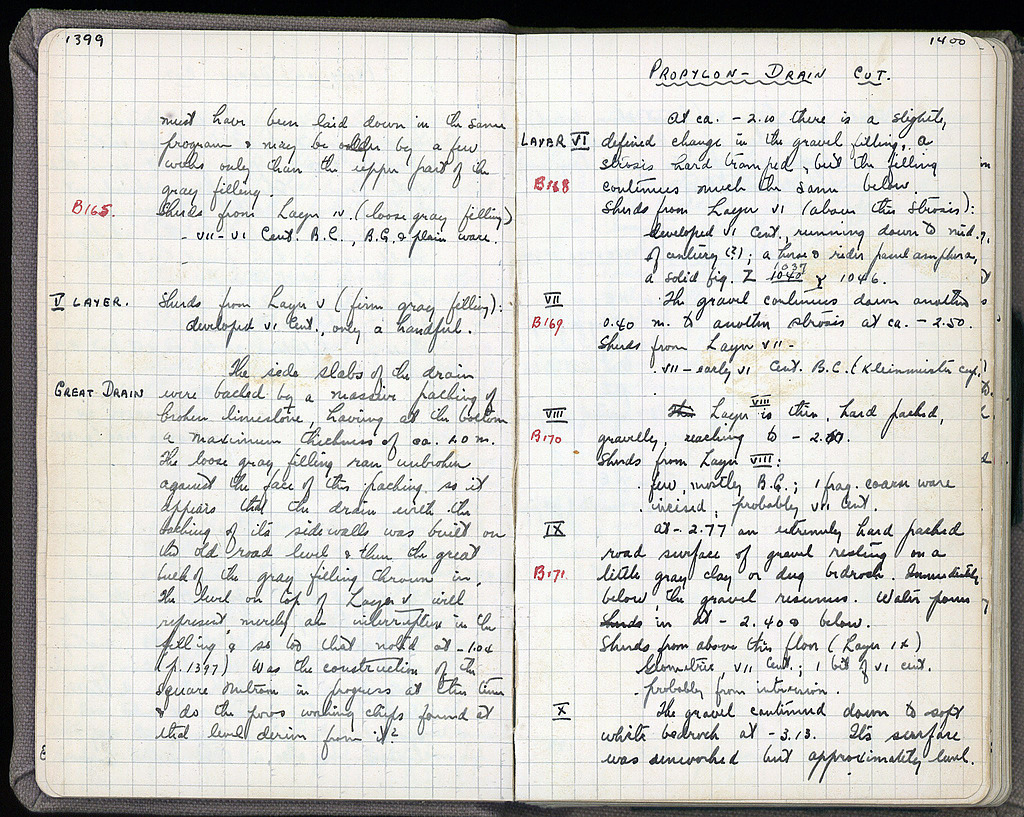 1399
must have been laid down in the same
program & may be older by a few
weeks only than the upper part of the
gray filling.
B165. Sherds from Layer IV. (loose gray filling)
- VII-VI Cent. B.C., B.G. & plain ware.
V LAYER. Sherds from Layer V (firm gray filling):
developed VI Cent., only a handful.
The side slabs of the drain
GREAT DRAIN were backed by a massive packing of
broken limestone, having at the bottom
a maximum thickness of ca. 1.0 m.
The loose gray filling ran unbroken
against the face of this packing so it
appears that the drain with the
backing of its side walls was built on
the old road level & then the great
bulk of the gray filling thrown in.
The level on top of Layer V will
represent merely an interruption in the
filling & so too that noted at -1.04
(p. 1397) Was the construction of the
square in progress at this time
& do the poros working chips found at
that level derive from it?
1400
PROPYLON - DRAIN CUT.
At ca. - 2.10 there is a slightly
LAYER VI defined change in the gravel filling, a
strosis hard tramped, but the filling
B168 continues much the same below.
Sherds from Layer VI (above this strosis):
developed VI Cent., running down to mid.
of century (?); a horse & rider panel amphora,
1037
a solid fig. Σ 1040 1046.
VII The gravel continues down another
B169 0.40 m. to another strosis at ca. - 2.50.
Sherds from Layer VII -
VII - early VI Cent. B.C. (Kleinmeister cup.)
VIII This Layer VIII is thin, hard packed,
B170 gravelly, reaching to
Sherds from Layer VIII:
few, mostly B.G.; 1 frag. coarse ware
incised, probably VII Cent.
IX At - 2.77 an extremely hard packed
road surface of gravel resting on a
B171 little gray clay or dug bedrock. Immediately
below, the gravel resumes. Water pours
Sherds in at - 2.40 & below.
Sherds from above this floor (Layer IX)
Geometric, VII Cent.; 1 bit of VI cent.
- probably from intrusion.
X The gravel continued down to soft
white bedrock at - 3.13. Its surface
was unworked but approximately level.